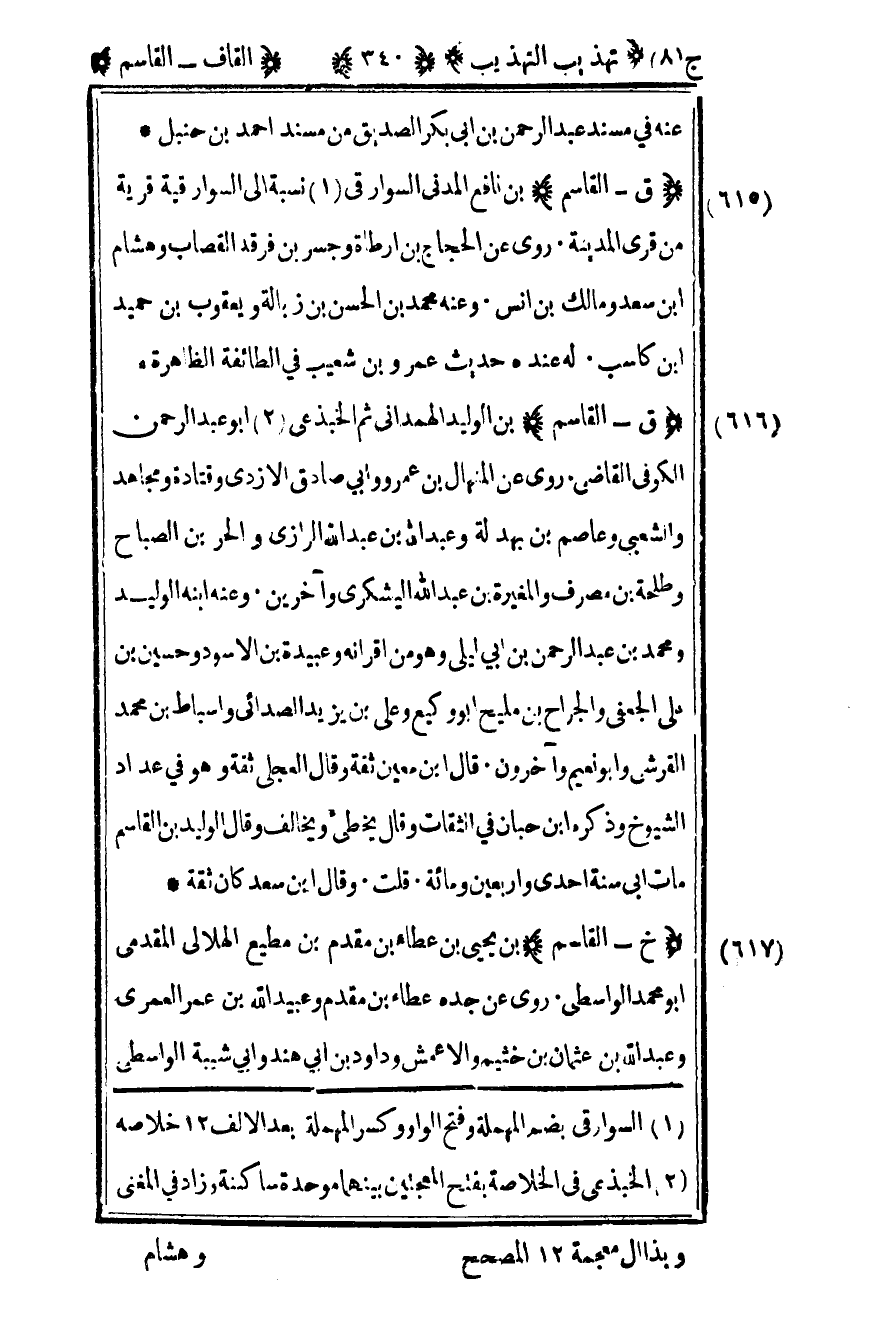 ج (٨) ﴿ تهذيب التهذيب ﴾ ﴿ ٣٤٠ ﴾ ﴿ القاف ـ القاسم ﴾
عنه في مسند عبد الرحمن بن ابى بكر الصديق من مسند احمد بن حنبل *
(٦١٥) ﴿ ق ـ القاسم ﴾ بن نافع المدنى السوارقى (١) نسبة الى السوارقية قرية
من قرى المدينة ٠ روى عن الحجاج بن ارطاة و جسر بن فرقد القصاب و هشام
ابن سعد و مالك بن انس ٠ وعنه محمد بن الحسن بن زبالة و يعقوب بن حميد
ابن كاسب ٠ له عنده حديث عمرو بن شعيب في الطائفة الظاهرة *
(٦١٦) ﴿ ق ـ القاسم ﴾ بن الوليد الهمدانى ثم الخبذعى (٢) ابو عبد الرحمن
الكوفى القاضى ٠ روى عن المنهال بن عمرو وابي صادق الازدى وقتادة ومجاهد
والشعبي وعاصم بن بهدلة وعبد الله بن عبد الله الرازى و الحر بن الصباح
وطلحة بن مصرف والمغيرة بن عبد الله اليشكرى وآخرين ٠ وعنه ابنه الوليد
ومحمد بن عبد الرحمن بن ابي ليلى وهو من اقرانه وعبيدة بن الاسود وحسين بن
على الجعفى والجراح بن مليح ابو وكيع وعلى بن يزيد الصدائى واسباط بن محمد
القرشى وابو نعيم وآخرون ٠ قال ابن معين ثقة وقال العجلى ثقة و هو في عداد
الشيوخ وذكره ابن حبان في الثقات وقال يخطىء ويخالف وقال الوليد بن القاسم
مات ابى سنة احدى واربعين ومائة ٠ قلت ٠ وقال ابن سعد كان ثقة *
(٦١٧) ﴿ خ ـ القاسم ﴾ بن يحيى بن عطاء بن مقدم بن مطيع الهلالى المقدمى
ابو محمد الواسطى ٠ روى عن جده عطاء بن مقدم وعبيد الله بن عمر العمرى
وعبد الله بن عثمان بن خثيم والاعمش وداود بن ابي هند وابي شيبة الواسطى
(١) السوارقى بضم المهملة وفتح الواو وكسر المهملة بعد الالف ١٢ خلاصه
(٢) الخبذعى فى الخلاصة بفتح المعجمتين بينهما موحدة ساكنة وزاد في المغنى
و بذاال معجمة ١٢ المصحح
و هشام